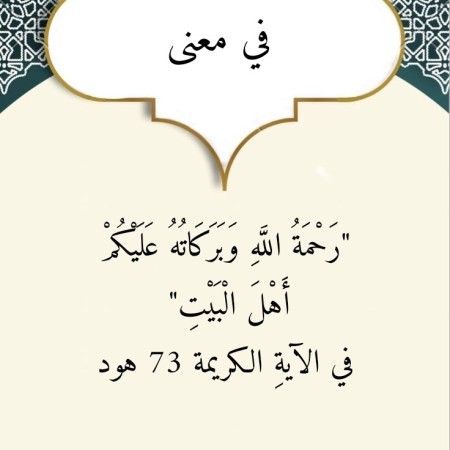 في معنى
"رَحْمَةُ اللَّهِ وَبَرَكَاتُهُ عَلَيْكُمْ
أَهْلَ الْبَيْتِ"
في الآيةِ الكريمة 73 هود